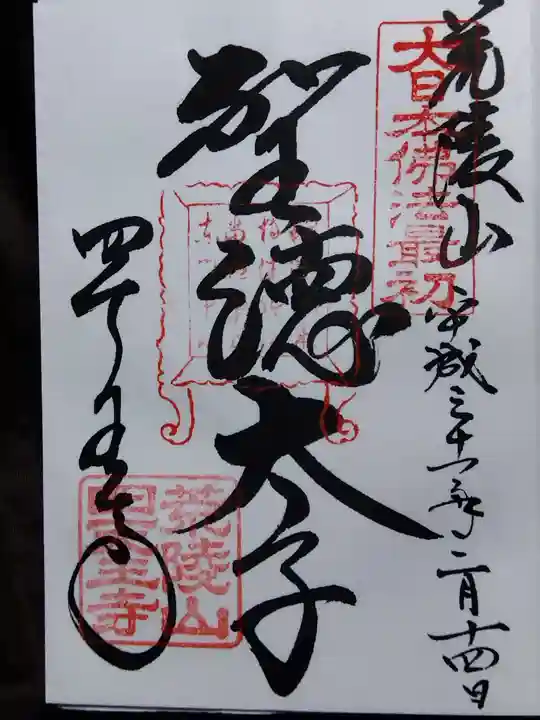 荒陵山 平成三十一年二月十四日
大日本佛法最初
聖徳太子
四天王寺
荒陵山
四天王寺